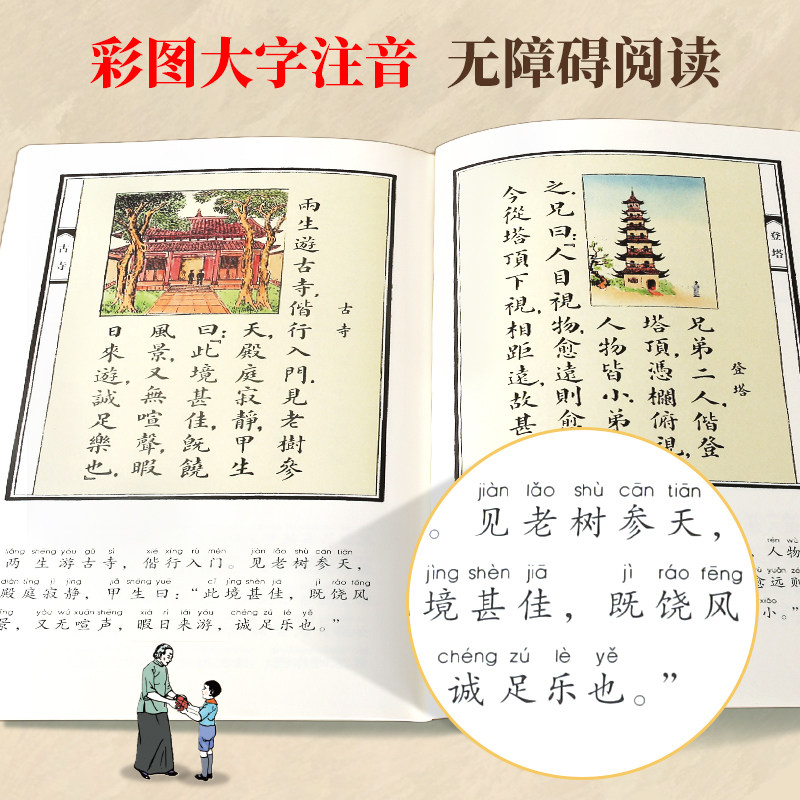 彩图大字注音 无障碍阅读
古寺
古寺
兩生遊古寺,偕行入門.見老樹參
天,殿庭寂靜,甲生
曰:「此境甚佳,旣饒
風景,又無喧聲,暇
日來遊,誠足樂也」.
登塔
登塔
兄弟二人,偕登
塔頂,憑欄俯視,
人物皆小.弟
之.兄曰:「人目視物,愈遠則愈
今從塔頂下視,相距遠,故甚
iǎng shēng yóu gǔ sì xié xíng rù mén jiàn lǎo shù cān tiān
两生游古寺，偕行入门。见老树参天，
diàn tíng jì jìng jiǎ shēng yuē cǐ jìng shèn jiā jì ráo fēng
殿庭寂静，甲生曰：“此境甚佳，既饶风
yòu wú xuān shēng xiá rì lái yóu chéng zú lè yě
景，又无喧声，暇日来游，诚足乐也。”
，人物
yuǎn zé
愈远则
xiǎo
小。”
jiàn lǎo shù cān tiān
。见老树参天，
jìng shèn jiā jì ráo fēng
境甚佳，既饶风
chéng zú lè yě
诚足乐也。”